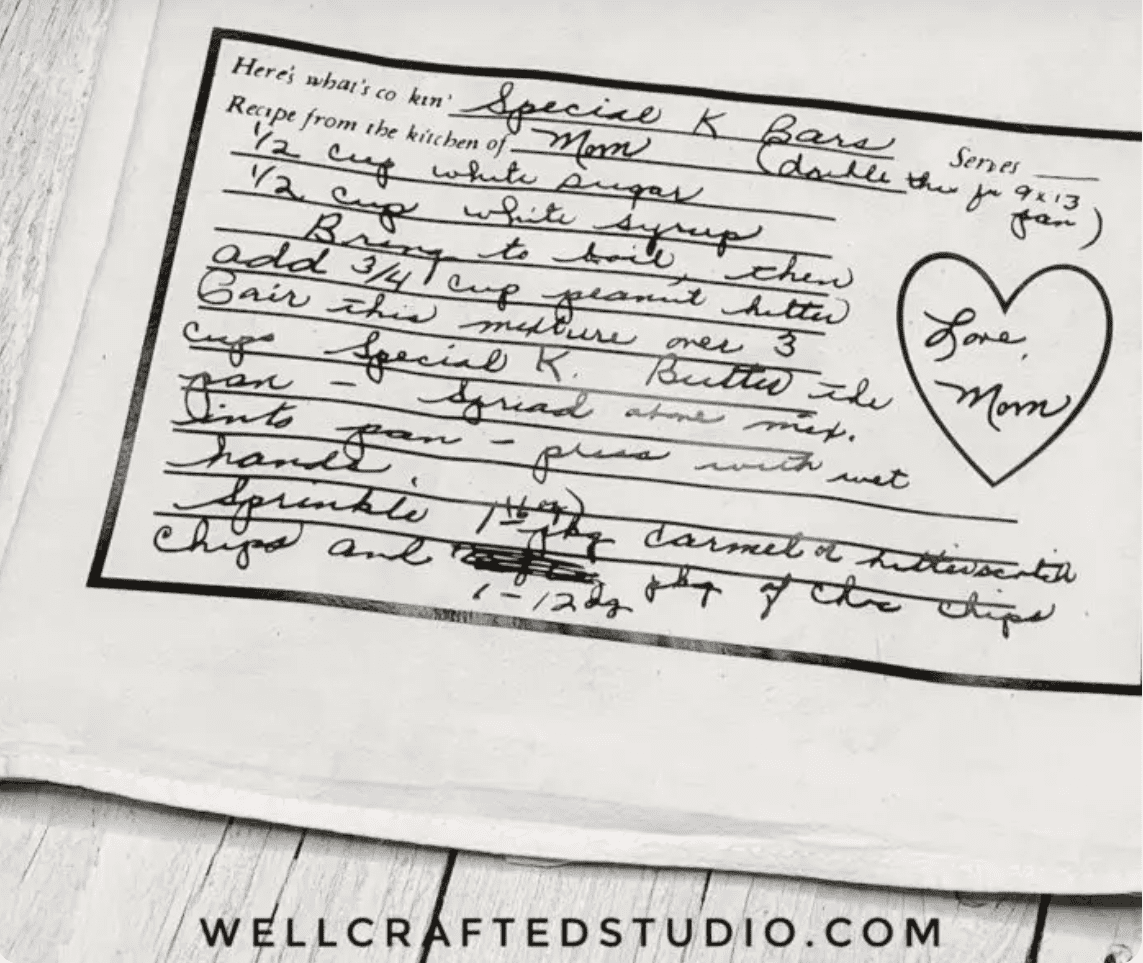 Here's what's co kin' Special K Bars
Recipe from the kitchen of Mom
Serves
(double this for 9x13
pan)
1/2 cup white sugar
1/2 cup white syrup
Bring to boil, then
add 3/4 cup peanut butter
Pair this mixture over 3
cups Special K. Butter the
pan - Spread above mix.
into pan - press with wet
hands.
Sprinkle 1 16 oz) pkg carmel or butterscotch
chips and pkg of choc chips
1-12 oz
Love,
Mom
WELLCRAFTEDSTUDIO.COM